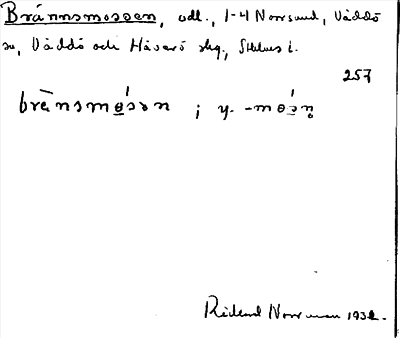 Brännsmossen, odl., 1-4 Norrsund, Väddö
sn, Väddö och Häverö skg., Sthlms l.
257
brènsmɵ̲́sən ; y. -mɵ̲́sn̥
Rickard Norrman 1932.